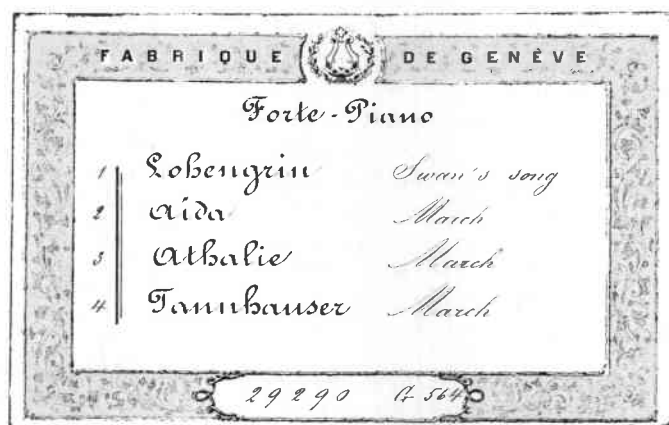 FABRIQUE DE GENÈVE
Forte-Piano
1 Lohengrin Swan's song
2 Aïda March
3 Athalie March
4 Tannhauser March
29290 G 564